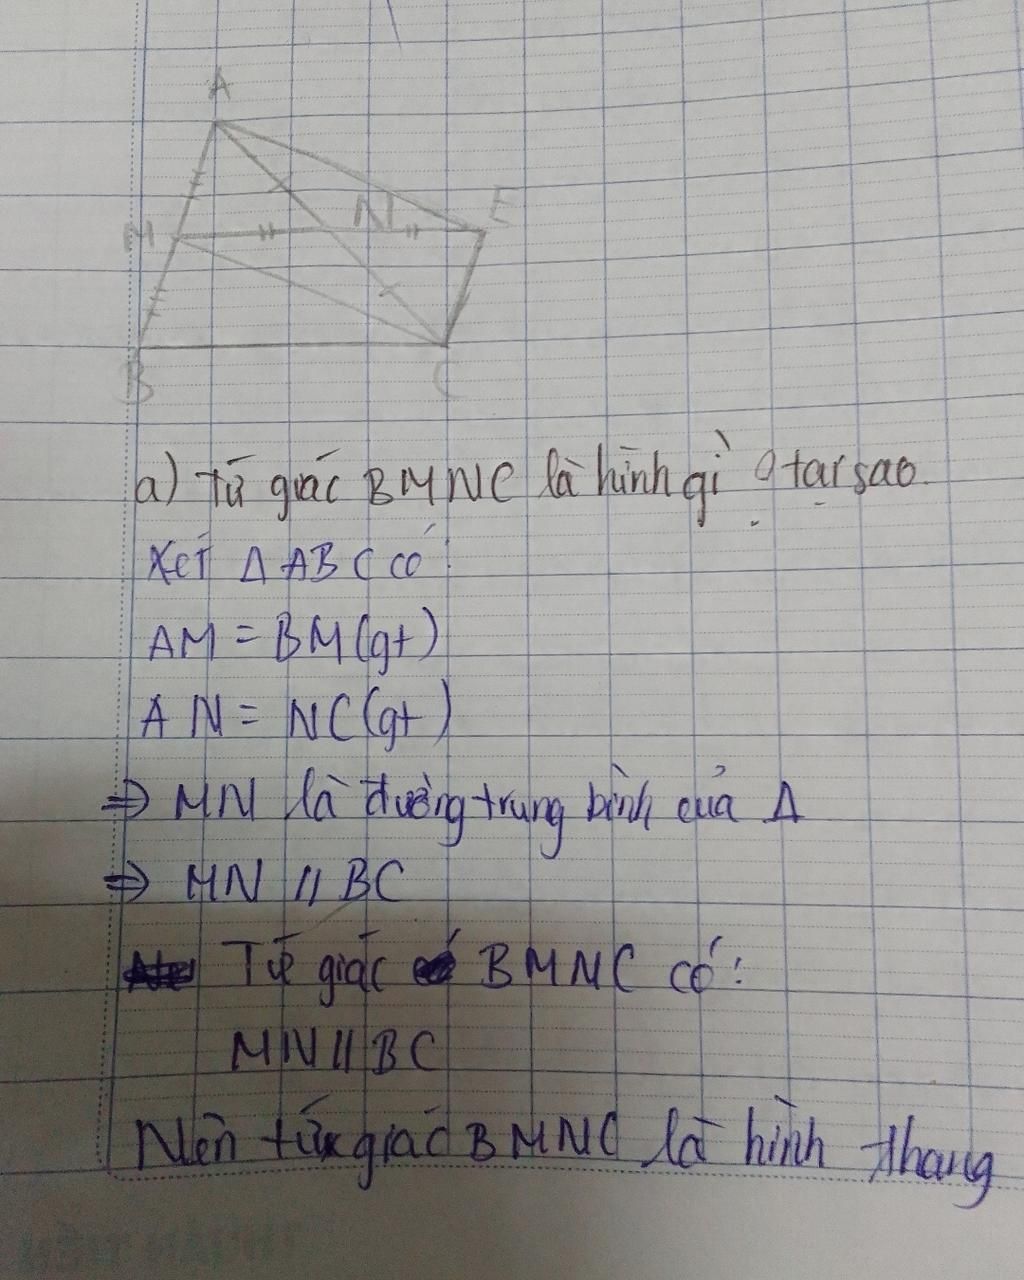 A
M
N
E
B
C
a) Tứ giác BMNC là hình gì ? tại sao.
Xét Δ ABC có :
AM = BM (gt)
AN = NC (gt)
=> MN là đường trung bình của Δ
=> MN // BC
Tứ giác BMNC có :
MN // BC
Nên tứ giác BMNC là hình thang